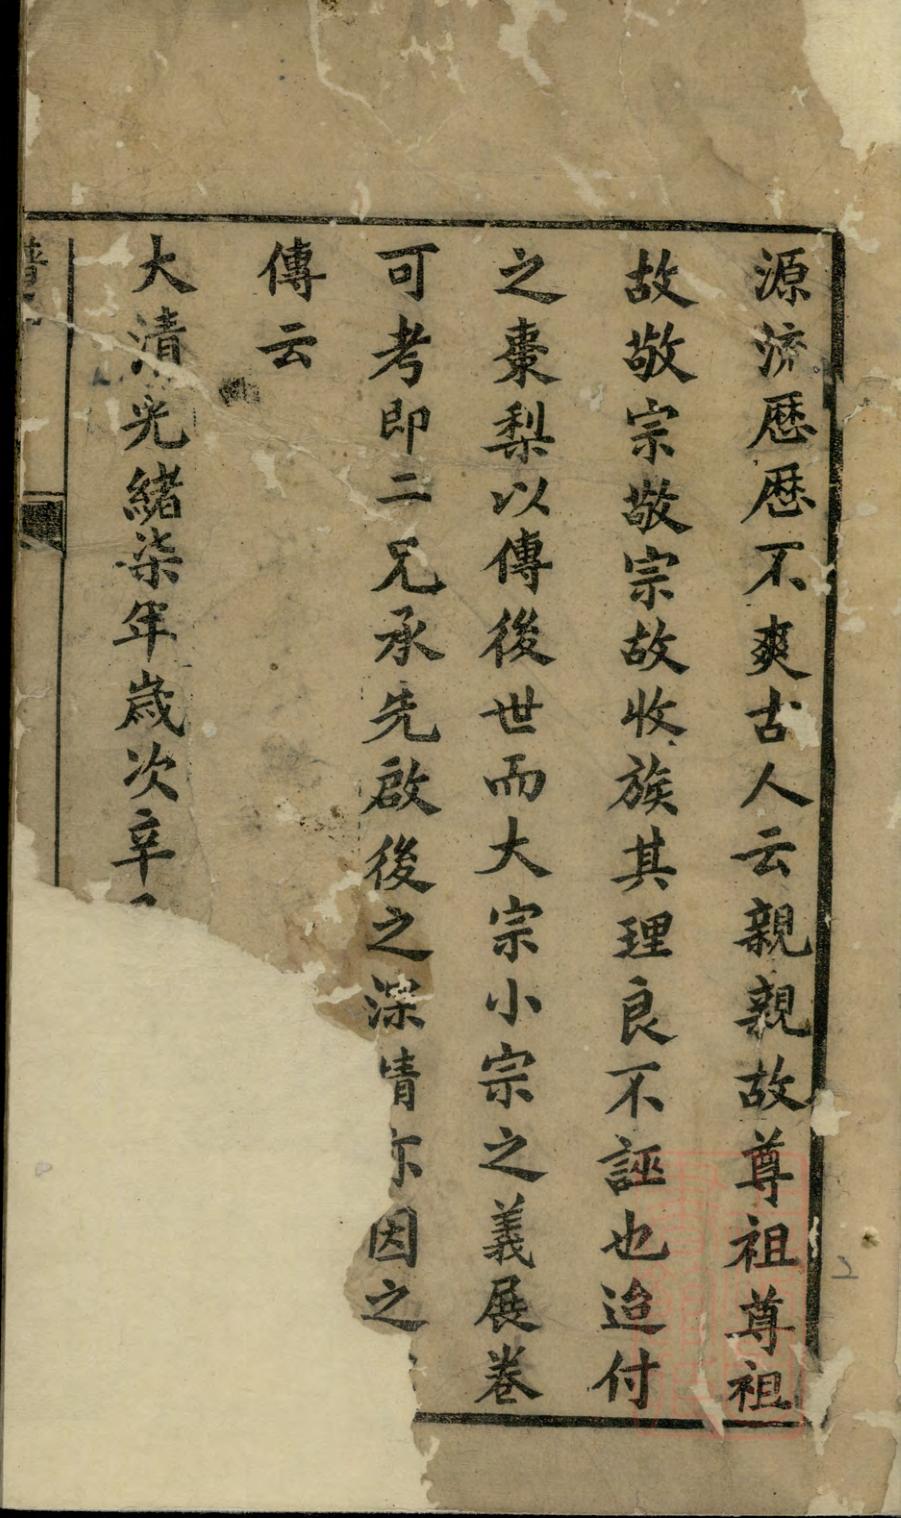 源流歷歷不爽古人云親親故尊祖尊祖
故敬宗敬宗故收族其理良不誣也迨付
之棗梨以傳後世而大宗小宗之義展卷
可考即二兄承先啟後之深情亦因之
傳云
大清光緒柒年歲次辛
譜